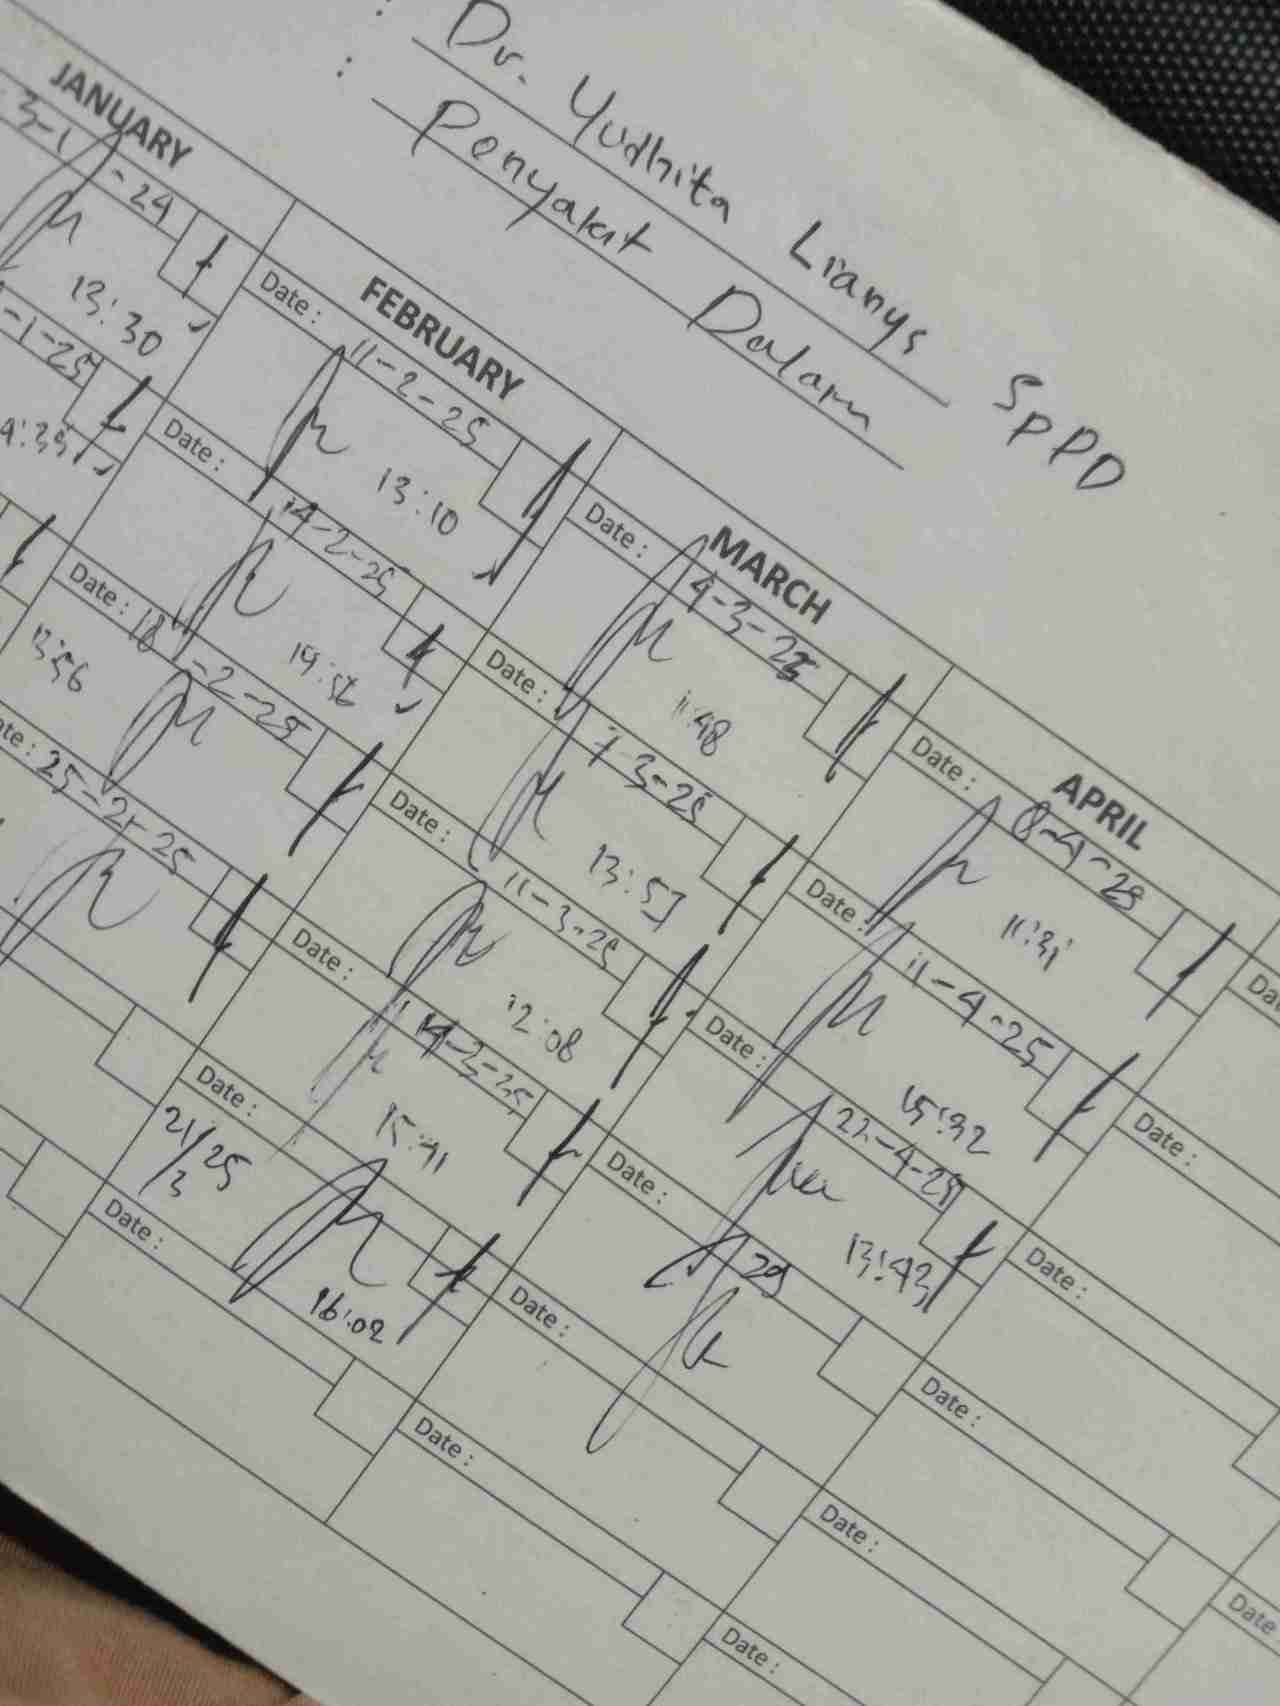 : Dr. Yudhita Lianys SpPD
: Penyakit Dalam
JANUARY
3-1-24
13:30
-1-25
13:56
FEBRUARY
Date : 11-2-25
13:10
Date : 14-2-25
19:56
Date : 18-2-25
Date : 25-2-25
MARCH
Date : 4-3-25
11:48
Date : 7-3-25
13:57
Date : 11-3-25
12:08
Date : 14-3-25
15:41
Date :
21/3 25
16:02
Date :
APRIL
Date : 8-4-25
11:31
Date : 11-4-25
15:32
Date : 22-4-25
13:43
Date : 29
Date :
Date :
Date :
Date :
Date :
Date :
Date :
Date